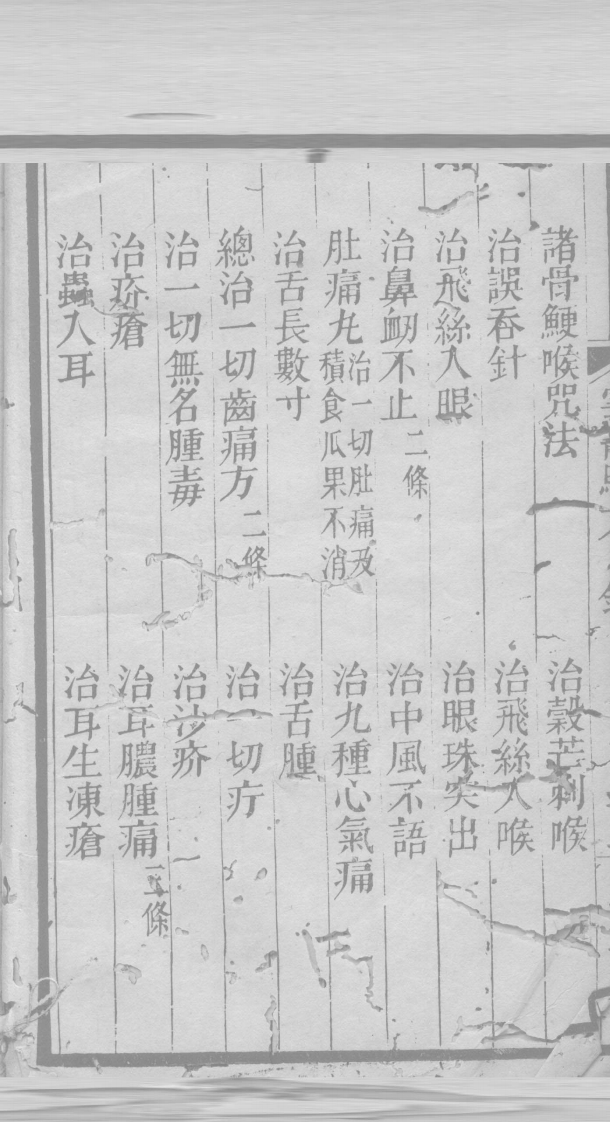 諸骨鯁喉咒法
治穀芒刺喉
治誤吞針
治飛絲入喉
治飛絲入眼
治眼珠突出
治鼻衂不止 二條
治中風不語
肚痛丸 治一切肚痛及積食瓜果不消
治九種心氣痛
治舌長數寸
治舌腫
總治一切齒痛方 二條
治一切疔
治一切無名腫毒
治沙疥
治疥瘡
治耳膿腫痛
治蟲入耳
治耳生凍瘡